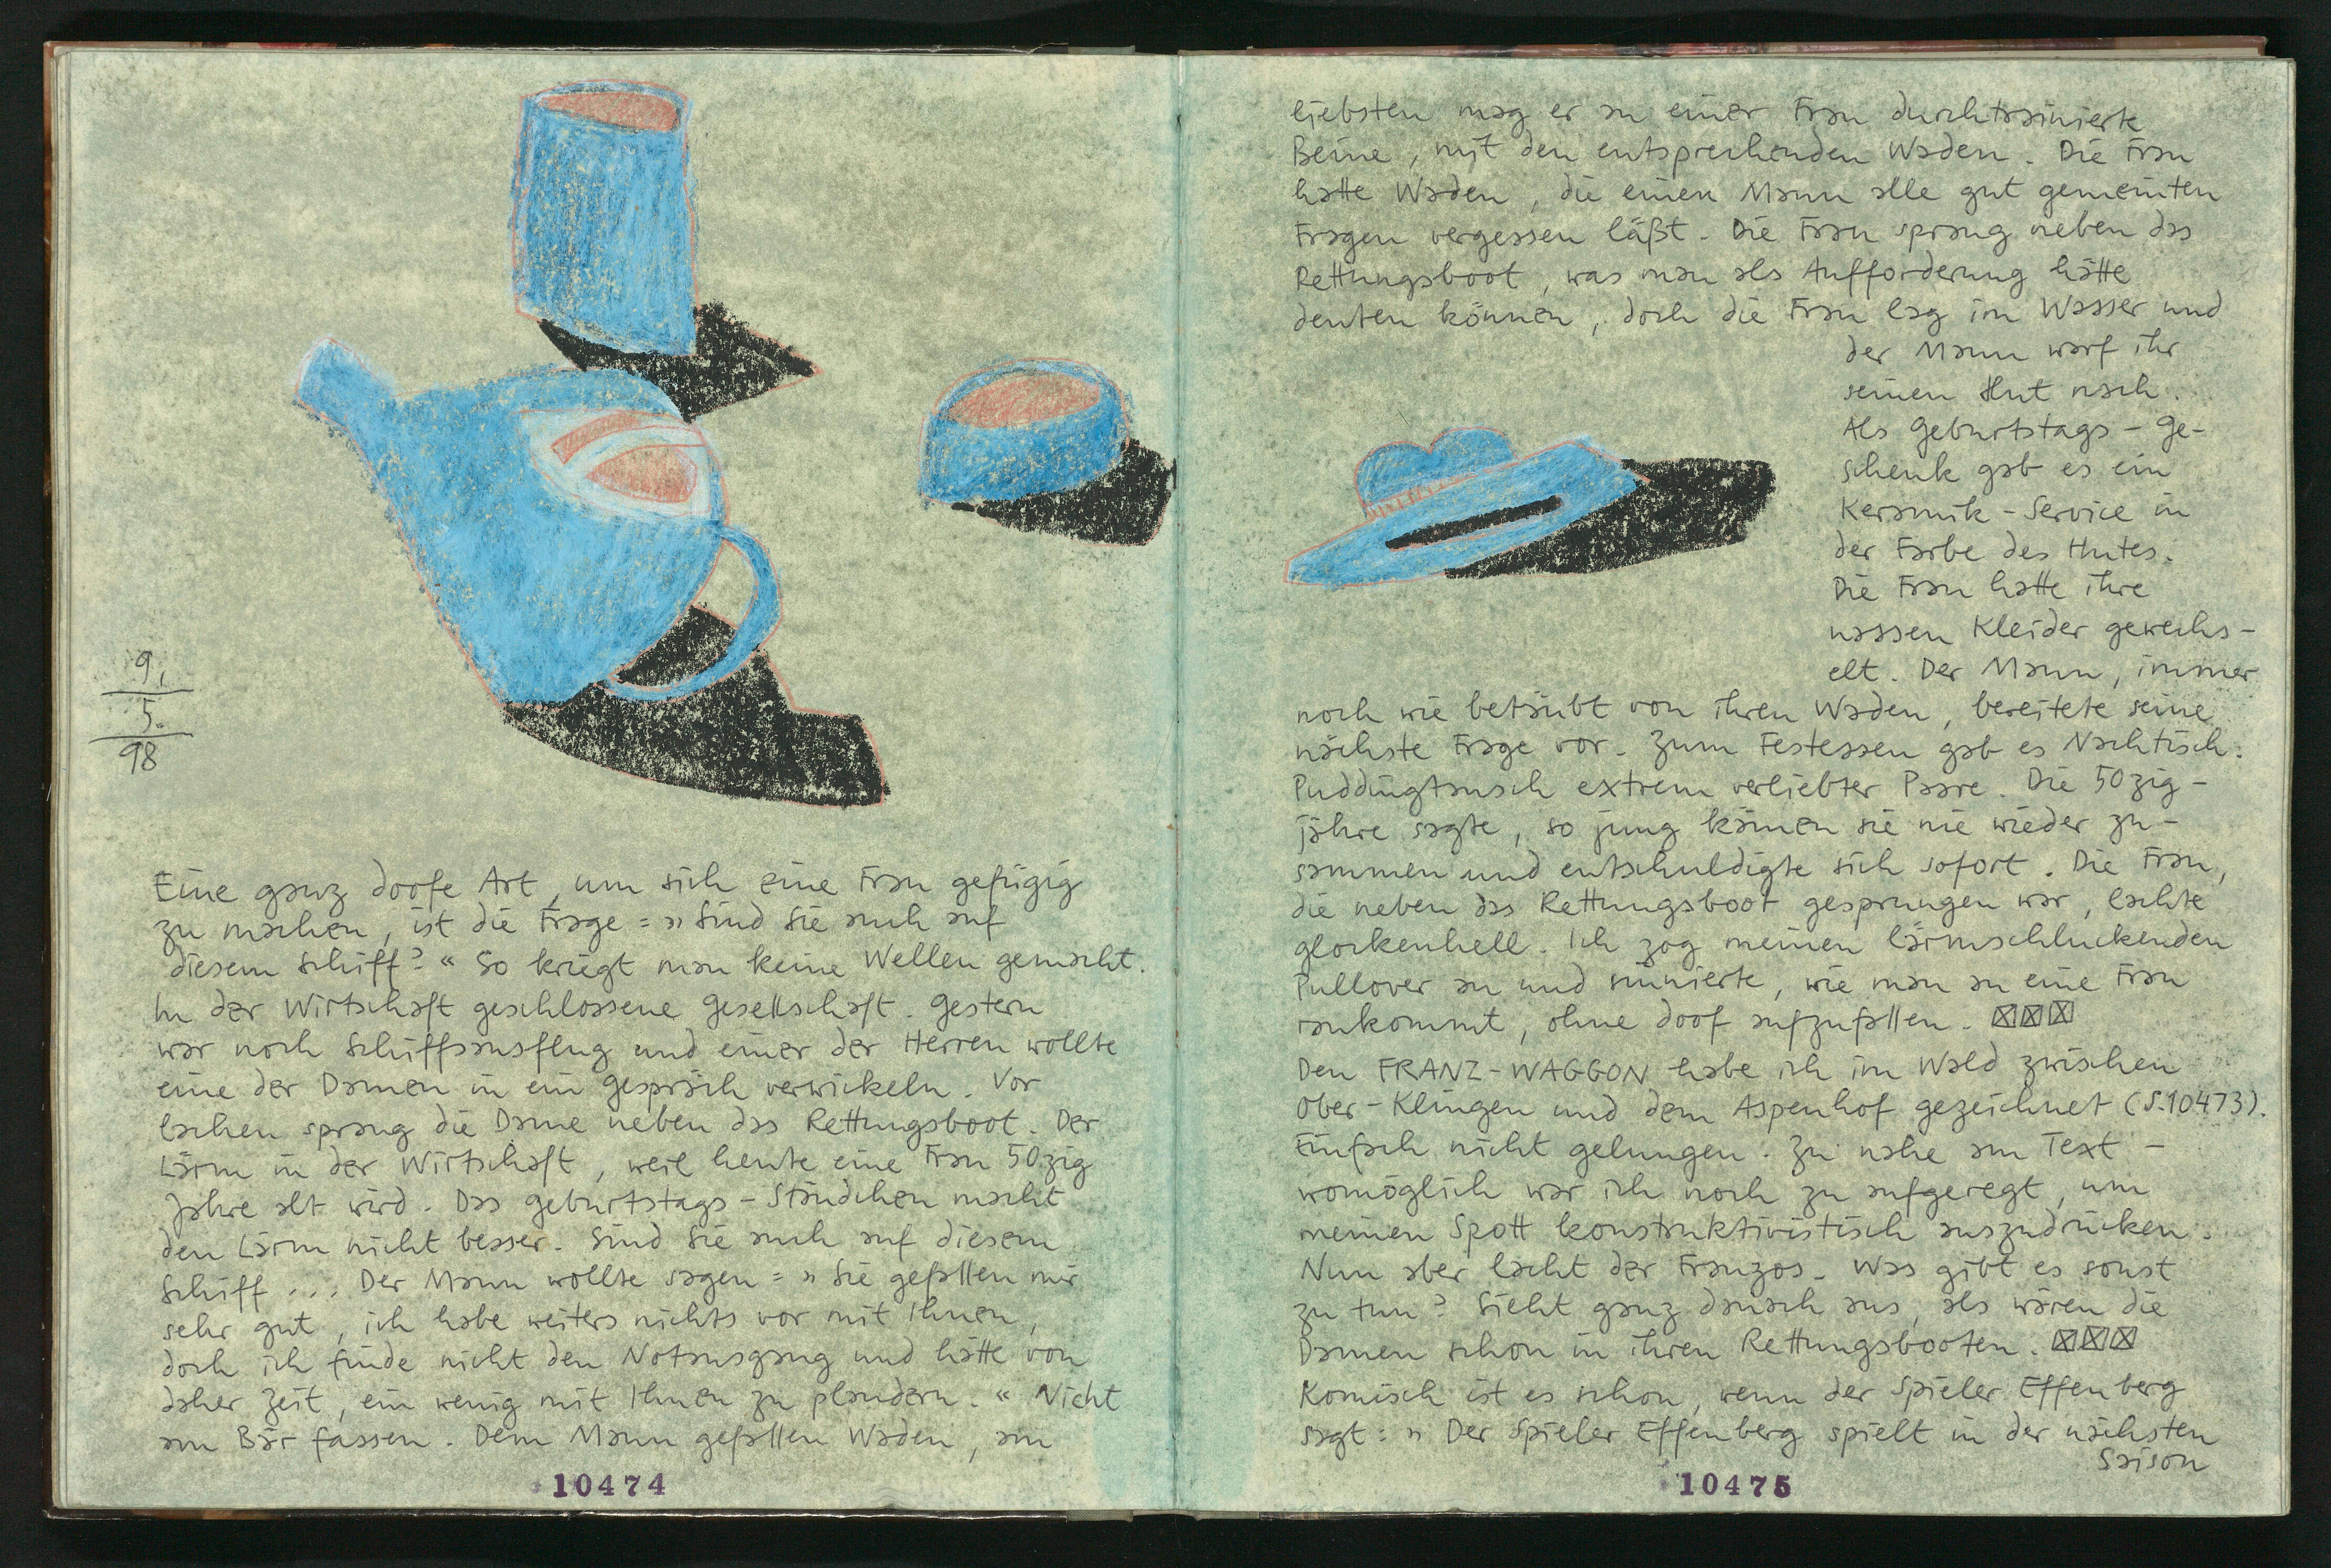 9.
5.
98
Eine ganz doofe Art, um sich eine Frau gefügig
zu machen, ist die Frage: » Sind Sie auch auf
diesem Schiff? « So kriegt man keine Wellen gemacht.
In der Wirtschaft geschlossene Gesellschaft. Gestern
war noch Schiffsausflug und einer der Herren wollte
eine der Damen in ein Gespräch verwickeln. Vor
lachen sprang die Dame neben das Rettungsboot. Der
Lärm in der Wirtschaft, weil heute eine Frau 50zig
Jahre alt wird. Das Geburtstags-Ständchen macht
den Lärm nicht besser. Sind Sie auch auf diesem
Schiff ... Der Mann wollte sagen: » Sie gefallen mir
sehr gut, ich habe weiters nichts vor mit Ihnen,
doch ich finde nicht den Notausgang und hätte von
daher Zeit, ein wenig mit Ihnen zu plaudern. « Nicht
am Bär fassen. Dem Mann gefallen Waden, am
10474
liebsten mag er an einer Frau durchtrainierte
Beine, mit den entsprechenden Waden. Die Frau
hatte Waden, die einen Mann alle gut gemeinten
Fragen vergessen läßt. Die Frau sprang neben das
Rettungsboot, was man als Aufforderung hätte
deuten können, doch die Frau lag im Wasser und
der Mann warf ihr
seinen Hut nach.
Als Geburtstags-Ge-
schenk gab es ein
Keramik-Service in
der Farbe des Hutes.
Die Frau hatte ihre
nassen Kleider gewechs-
elt. Der Mann, immer
noch wie betäubt von ihren Waden, bereitete seine
nächste Frage vor. Zum Festessen gab es Nachtisch.
Puddingtausch extrem verliebter Paare. Die 50zig-
jähre sagte, so jung kämen sie nie wieder zu-
sammen und entschuldigte sich sofort. Die Frau,
die neben das Rettungsboot gesprungen war, lachte
glockenhell. Ich zog meinen lärmschluckenden
Pullover an und sinnierte, wie man an eine Frau
rankommt, ohne doof aufzufallen.
Den FRANZ-WAGGON habe ich im Wald zwischen
Ober-Klingen und dem Aspenhof gezeichnet (S.10473).
Einfach nicht gelungen. Zu nahe am Text -
womöglich war ich noch zu aufgeregt, um
meinen Spott konstruktivistisch auszudrücken.
Nun aber lacht der Franzos. Was gibt es sonst
zu tun? Sieht ganz danach aus, als wären die
Damen schon in ihren Rettungsbooten.
Komisch ist es schon, wenn der Spieler Effenberg
sagt: » Der Spieler Effenberg spielt in der nächsten
Saison
10475